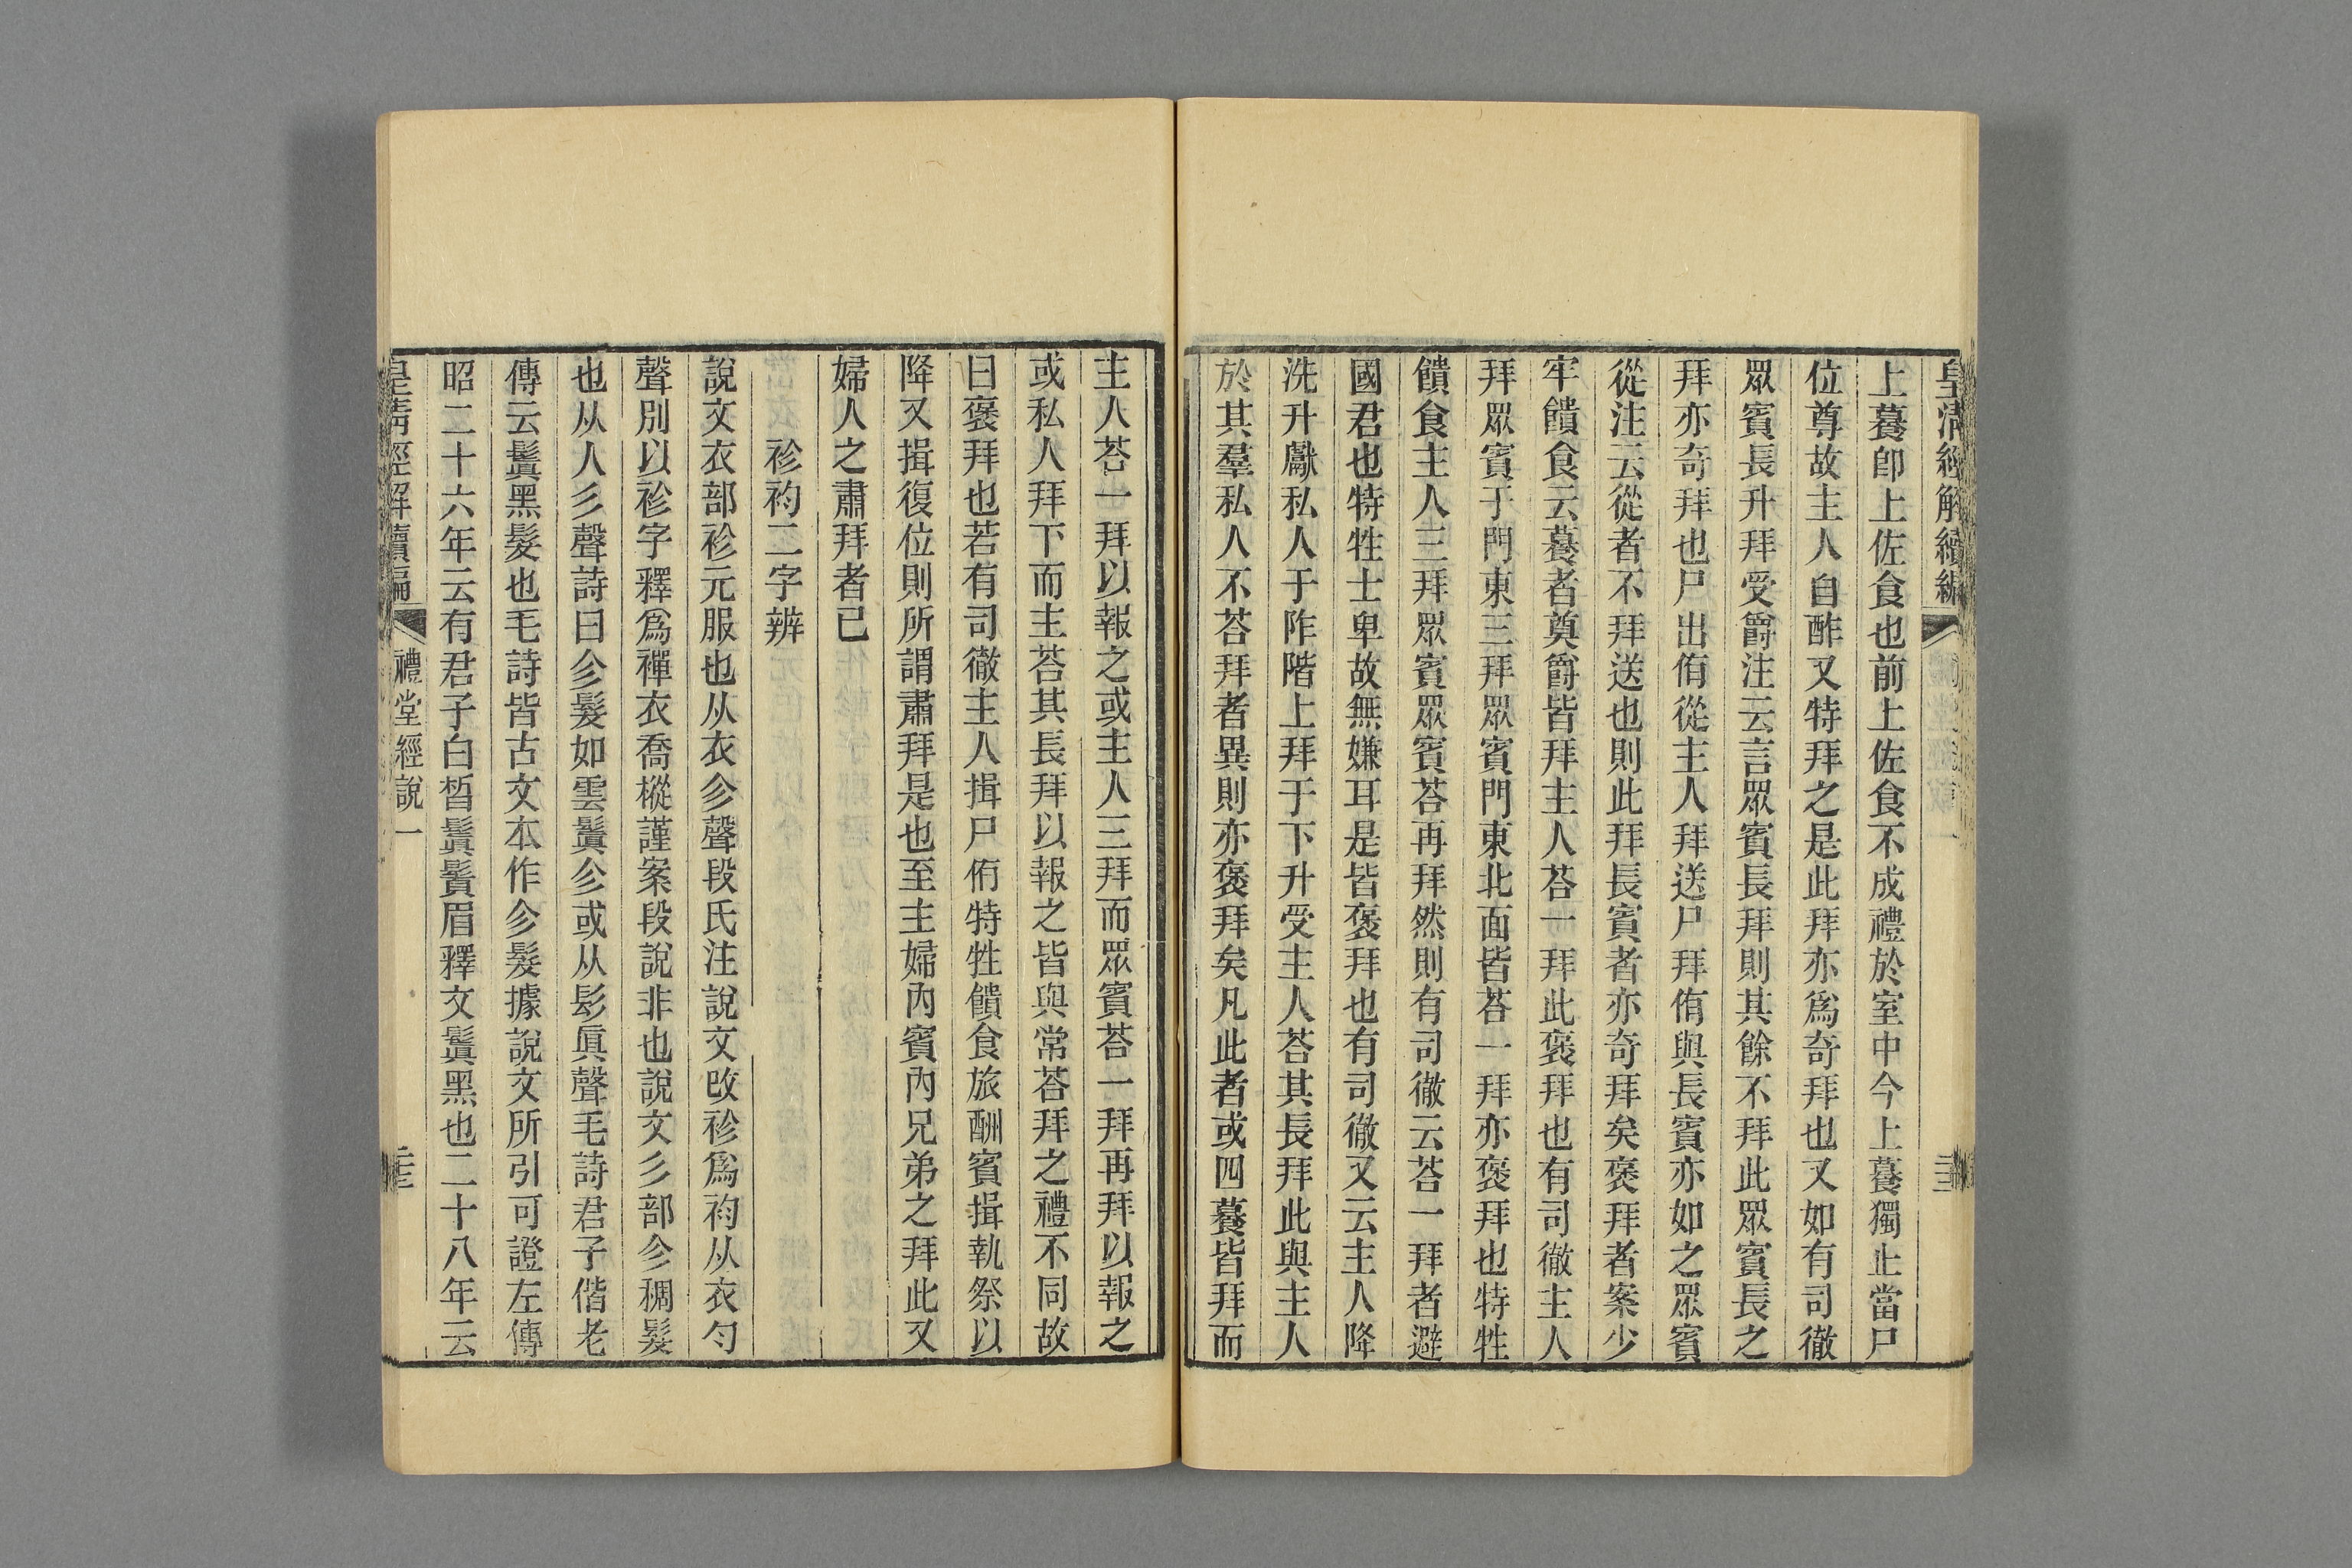 皇清經解續編
上養卽上佐食也前上佐食不成禮於室中今上養獨止當尸
位尊故主人自酢又特拜之是此拜亦爲奇拜也又如有司徹
眾賓長升拜受爵注云言眾賓長拜則其餘不拜此眾賓長之
拜亦奇拜也尸出侑從主人拜送尸拜侑與長賓亦如之眾賓
從注云從者不拜送也則此拜長賓者亦奇拜矣褒拜者案少
牢饋食云養者奠爵皆拜主人荅一拜此褒拜也有司徹主人
拜眾賓于門東三拜眾賓門東北面皆荅一拜亦褒拜也特牲
饋食主人三拜眾賓眾賓荅再拜然則有司徹云荅一拜者避
國君也特牲士卑故無嫌耳是皆褒拜也有司徹又云主人降
洗升獻私人于阼階上拜于下升受主人荅其長拜此與主人
於其羣私人不荅拜者異則亦褒拜矣凡此者或四養皆拜而
主人荅一拜以報之或主人三拜而眾賓荅一拜再拜以報之
或私人拜下而主荅其長拜以報之皆與常荅拜之禮不同故
曰褒拜也若有司徹主人揖尸侑特牲饋食旅酬賓揖執祭以
降又揖復位則所謂肅拜是也至主婦內賓內兄弟之拜此又
婦人之肅拜者已
袗袀二字辨
說文衣部袗元服也从衣㐱聲段氏注說文改袗爲袀从衣勻
聲別以袗字釋爲襌衣喬樅謹案段說非也說文彡部㐱稠髮
也从人彡聲詩曰㐱髮如雲鬒㐱或从髟眞聲毛詩君子偕老
傳云鬒黑髮也毛詩皆古文本作㐱髮據說文所引可證左傳
昭二十六年云有君子白皙鬒鬚眉釋文鬒黑也二十八年云
皇清經解續編 禮堂經說一